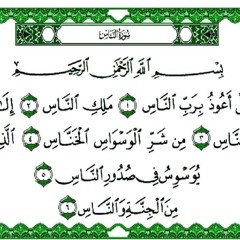 سُورَةُ النَّاسِ
بِسْمِ اللَّهِ الرَّحْمَٰنِ الرَّحِيمِ
لْ أَعُوذُ بِرَبِّ النَّاسِ ١ مَلِكِ النَّاسِ ٢ إِلَٰ
نَّاسِ ٣ مِن شَرِّ الْوَسْوَاسِ الْخَنَّاسِ ٤ الَّذِ
يُوَسْوِسُ فِي صُدُورِ النَّاسِ ٥
مِنَ الْجِنَّةِ وَالنَّاسِ ٦